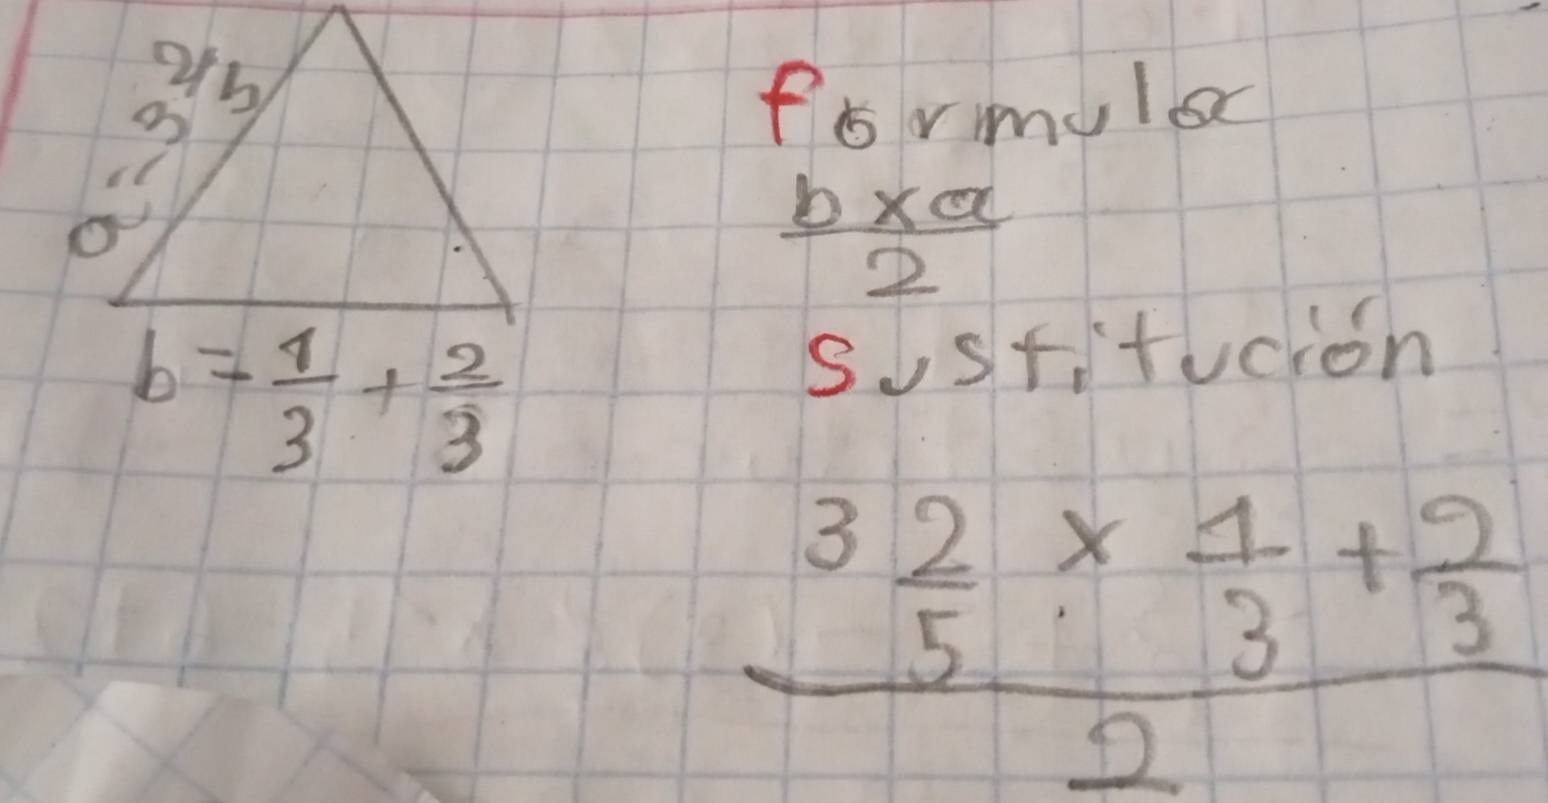 a = 3 2/5
b = 1/3 + 2/3
formula
b x a
2
Sustitución
3 2/5 x 1/3 + 2/3
2